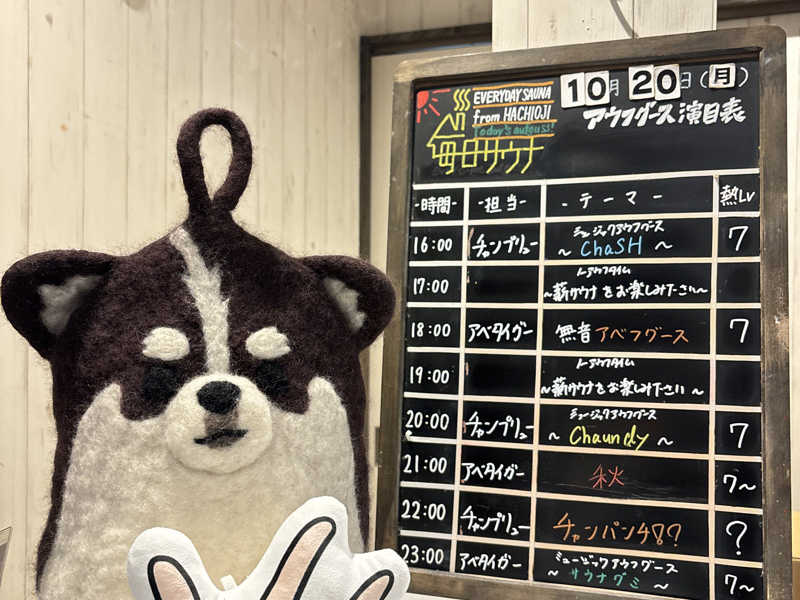 EVERYDAY SAUNA
from HACHIOJI
Today's aufguss!
毎日サウナ
10月20日(月)
アウフグース演目表
-時間- -担当- -テーマ- 熱LV
16:00 チャンプリュー ミュージックアウフグース 7
~ ChaSH ~
17:00 ノーアウフタイム
~薪サウナをお楽しみ下さい~
18:00 アベタイガー 無音アベフグース 7
19:00 ノーアウフタイム
~薪サウナをお楽しみ下さい~
20:00 チャンプリュー ミュージックアウフグース 7
~ Chaundy ~
21:00 アベタイガー 秋 7~
22:00 チャンプリュー チャンパン ?
23:00 アベタイガー ミュージックアウフグース 7~
~ サウナグミ ~